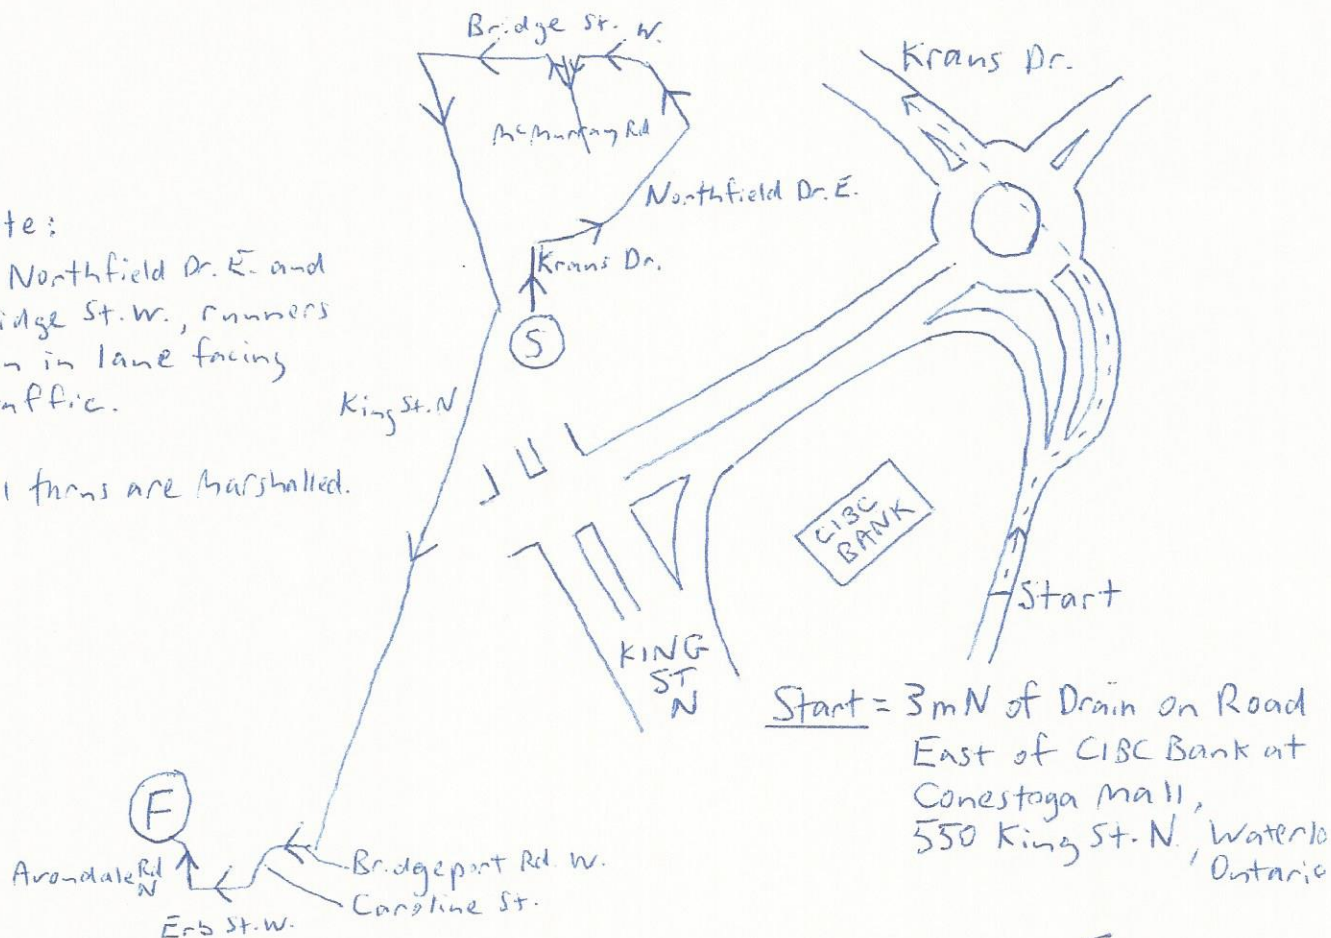 Bridge St. W.
McMurray Rd
Northfield Dr. E.
Krans Dr.
S
King St. N
te:
Northfield Dr. E. and
idge St. W., runners
n in lane facing
affic.
l turns are Marshalled.
Krans Dr.
CIBC
BANK
Start
KING
ST
N
Start = 3mN of Drain on Road
East of CIBC Bank at
Conestoga Mall,
550 King St. N., Waterlo
Ontario
F
Avondale Rd
N
Erb St. W.
Bridgeport Rd. W.
Caroline St.